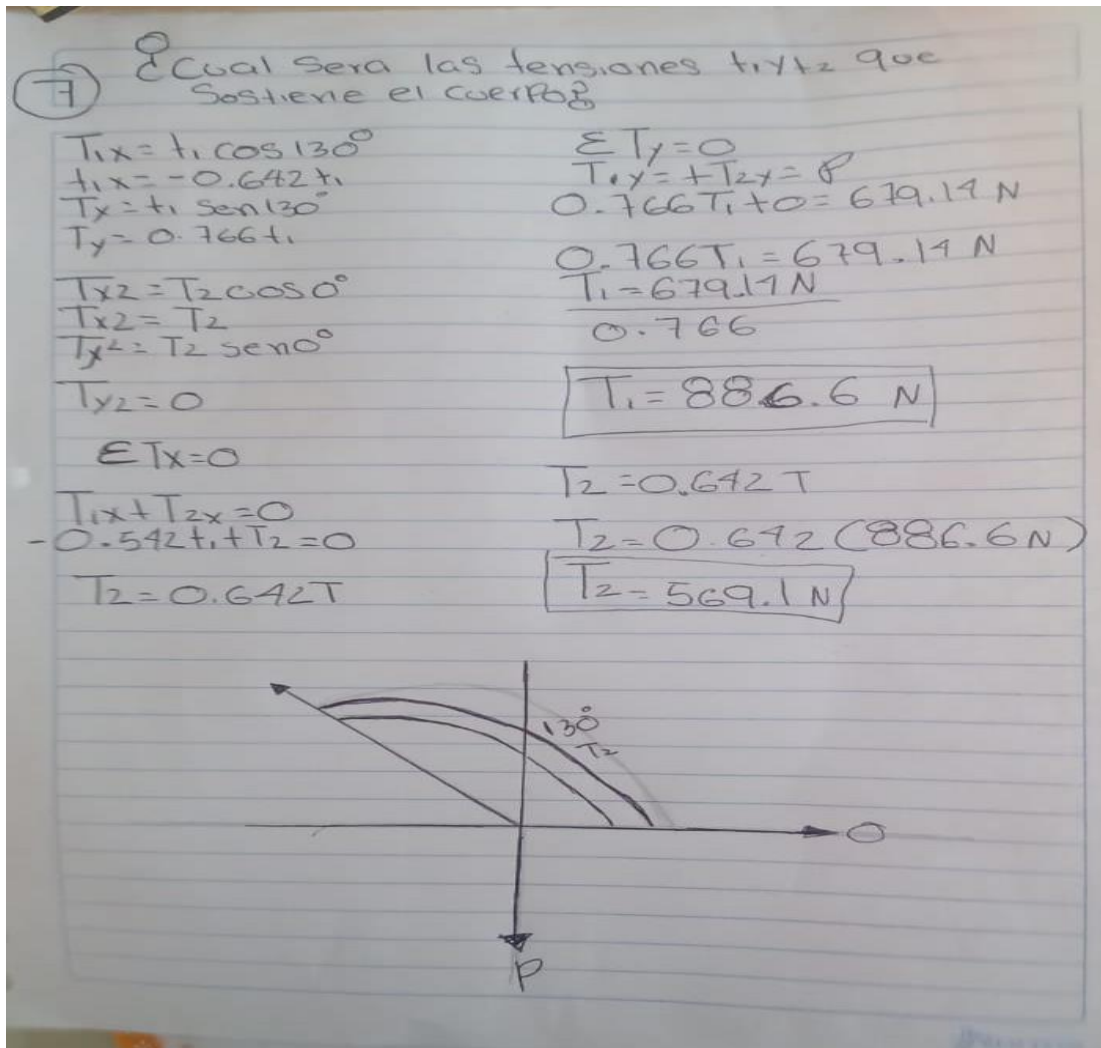 7
¿Cual Sera las tensiones t₁ y t₂ que
Sostiene el cuerpo?
T₁x = t₁ cos 130°
t₁x = -0.642 t₁
Tx = t₁ sen 130°
Ty = 0.766 t₁
Tx2 = T2 cos 0°
Tx2 = T2
Ty2 = T2 sen 0°
Ty2 = 0
ΣTx=0
T₁x + T₂x = 0
-0.542 t₁ + T₂ = 0
T₂ = 0.642T
ΣTy = 0
T₁y = + T₂y = P
0.766 T₁ + 0 = 679.14 N
0.766 T₁ = 679.14 N
T₁ = 679.14 N
0.766
T₁ = 886.6 N
T₂ = 0.642 T
T₂ = 0.642 (886.6 N)
T₂ = 569.1 N
130°
T₂
0
P